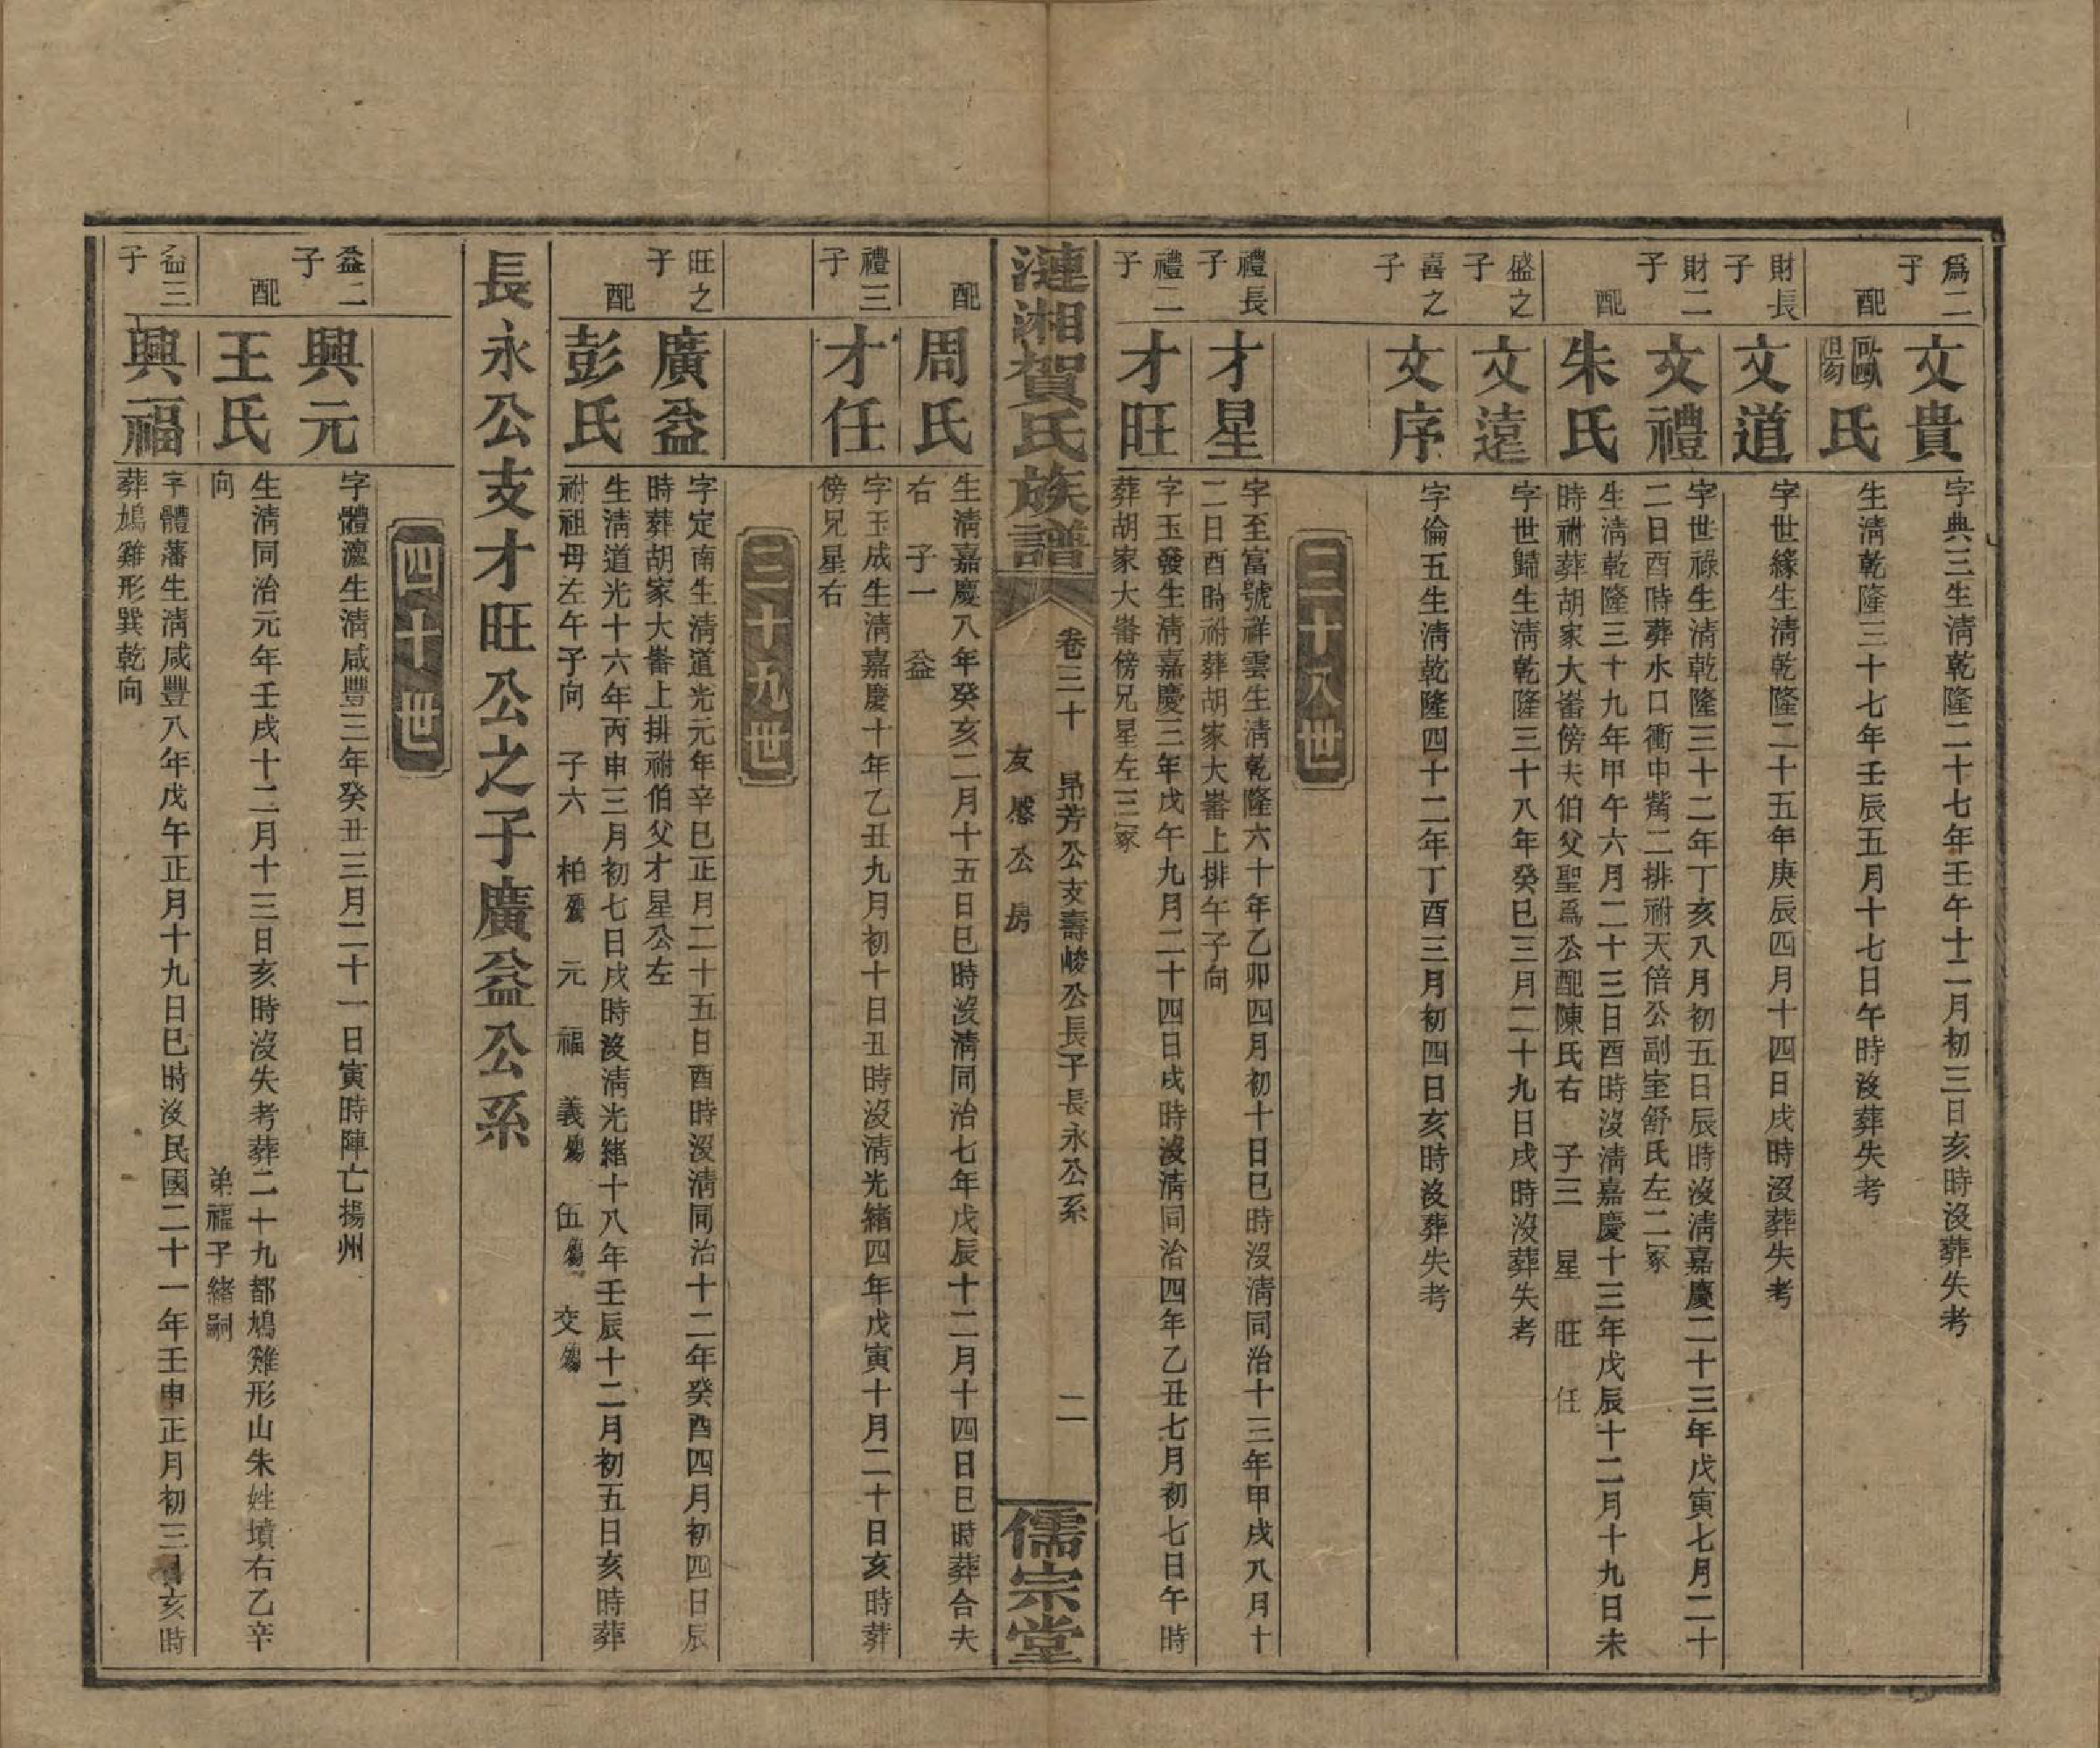 爲二子
文貴
字典三生淸乾隆二十七年壬午十二月初三日亥時沒葬失考
配
歐陽氏
生淸乾隆三十七年壬辰五月十七日午時沒葬失考
財長子
文道
字世緣生淸乾隆二十五年庚辰四月十四日戌時沒葬失考
財二子
文禮
字世祿生淸乾隆三十二年丁亥八月初五日辰時沒淸嘉慶二十三年戊寅七月二十
二日酉時葬水口衝中嘴二排祔天倍公副室舒氏左二冢
配
朱氏
生淸乾隆三十九年甲午六月二十三日酉時沒淸嘉慶十三年戊辰十二月十九日未
時祔葬胡家大崙傍夫伯父聖爲公配陳氏右 子三 星 旺 任
盛之子
文遠
字世歸生淸乾隆三十八年癸巳三月二十九日戌時沒葬失考
喜之子
文序
字倫五生淸乾隆四十二年丁酉三月初四日亥時沒葬失考
三十八世
禮長子
才星
字至富號祥雲生淸乾隆六十年乙卯四月初十日巳時沒淸同治十三年甲戌八月十
二日酉時祔葬胡家大崙上排午子向
禮二子
才旺
字玉發生淸嘉慶三年戊午九月二十四日戌時沒淸同治四年乙丑七月初七日午時
葬胡家大崙傍兄星左三冢
漣湘賀氏族譜
卷三十 昂芳公支壽峻公長子長永公系
友 公房
二
儒宗堂
配
周氏
生淸嘉慶八年癸亥二月十五日巳時沒淸同治七年戊辰十二月十四日巳時葬合夫
右 子一 益
禮三子
才任
字玉成生淸嘉慶十年乙丑九月初十日丑時沒淸光緒四年戊寅十月二十日亥時葬
傍兄星右
三十九世
旺之子
廣益
字定南生淸道光元年辛巳正月二十五日酉時沒淸同治十二年癸酉四月初四日辰
時葬胡家大崙上排祔伯父才星公左
配
彭氏
生淸道光十六年丙申三月初七日戌時沒淸光緒十八年壬辰十二月初五日亥時葬
祔祖母左午子向 子六 柏殤 元 福 義殤 伍殤 交殤
長永公支才旺公之子廣益公系
四十世
益二子
興元
字體瀍生淸咸豐三年癸丑三月二十一日寅時陣亡揚州
配
王氏
生淸同治元年壬戌十二月十三日亥時沒失考葬二十九都鳩雞形山朱姓墳右乙辛
向 弟福子緒嗣
益三子
興福
字體藩生淸咸豐八年戊午正月十九日巳時沒民國二十一年壬申正月初三日亥時
葬鳩雞形巽乾向